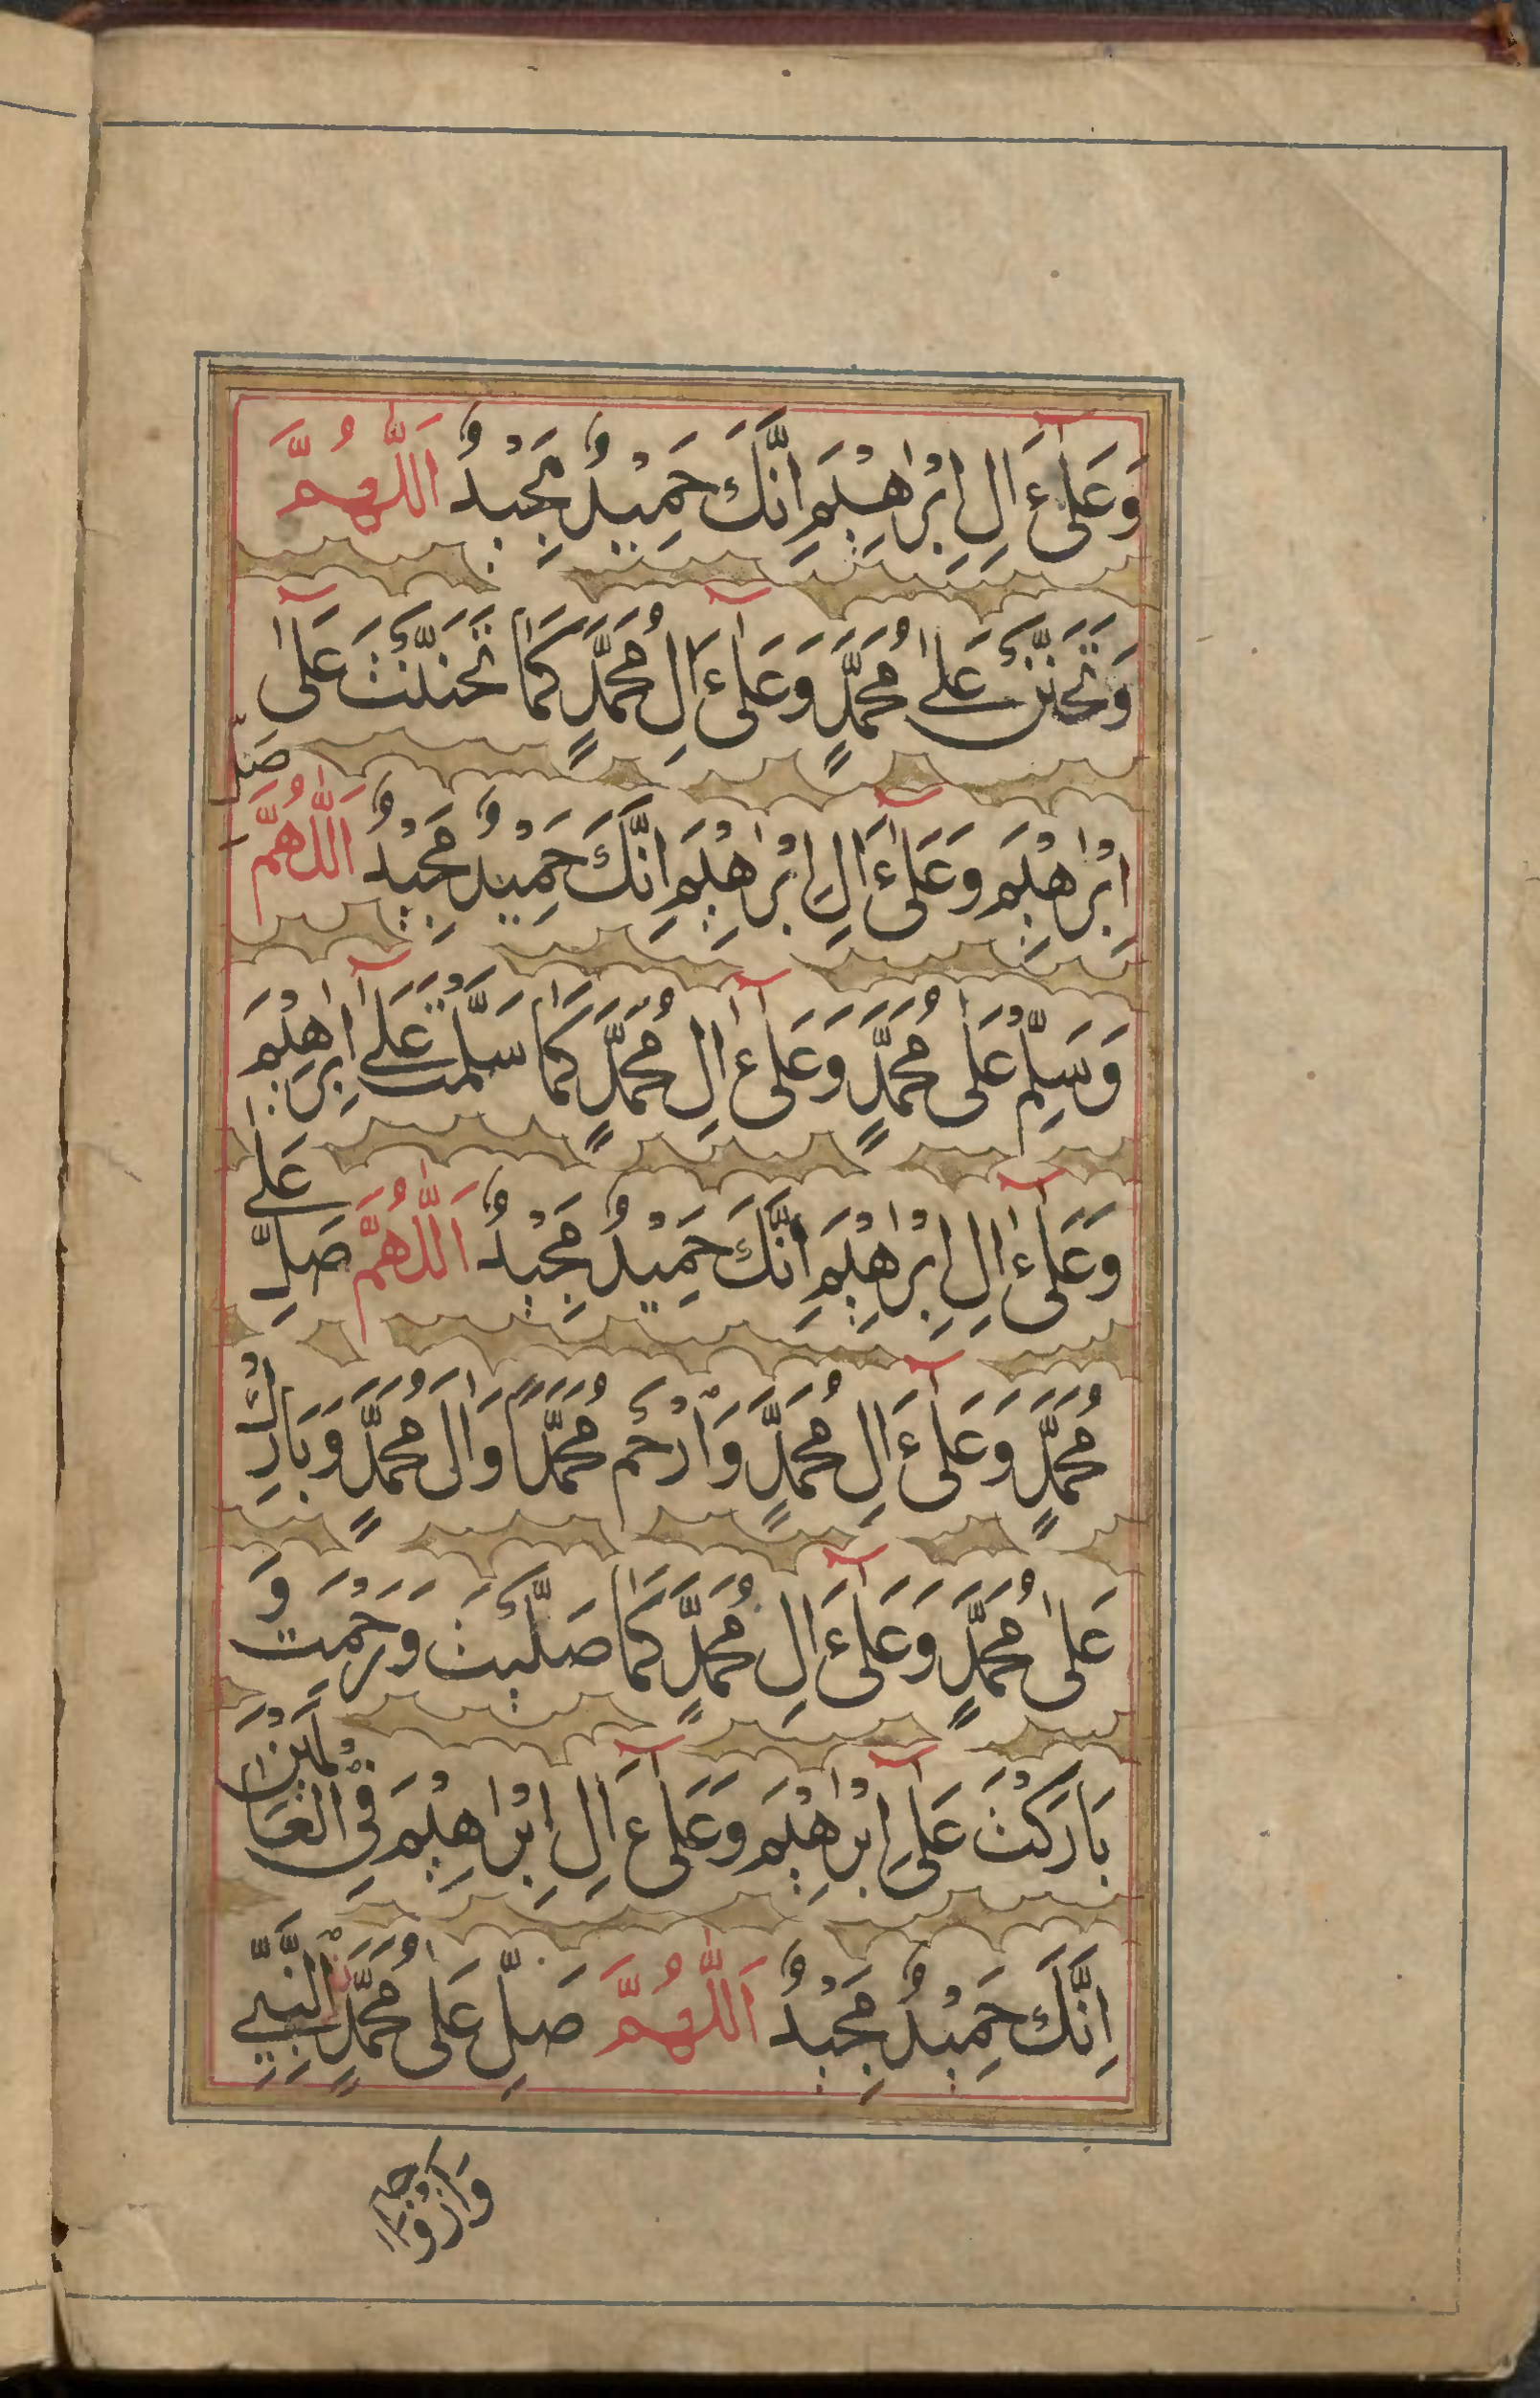 وَعَلٰٓى اٰلِ اِبْرٰهِيْمَ اِنَّكَ حَمِيْدٌ مَجِيْدٌ اَللّٰهُمَّ
وَتَحَنَّنْ عَلٰى مُحَمَّدٍ وَعَلٰٓى اٰلِ مُحَمَّدٍ كَمَا تَحَنَّنْتَ عَلٰٓى
اِبْرٰهِيْمَ وَعَلٰٓى اٰلِ اِبْرٰهِيْمَ اِنَّكَ حَمِيْدٌ مَجِيْدٌ اَللّٰهُمَّ صَلِّ
وَسَلِّمْ عَلٰى مُحَمَّدٍ وَعَلٰٓى اٰلِ مُحَمَّدٍ كَمَا سَلَّمْتَ عَلٰٓى اِبْرٰهِيْمَ
وَعَلٰٓى اٰلِ اِبْرٰهِيْمَ اِنَّكَ حَمِيْدٌ مَجِيْدٌ اَللّٰهُمَّ صَلِّ عَلٰى
مُحَمَّدٍ وَعَلٰٓى اٰلِ مُحَمَّدٍ وَارْحَمْ مُحَمَّدًا وَاٰلَ مُحَمَّدٍ وَبَارِكْ
عَلٰى مُحَمَّدٍ وَعَلٰٓى اٰلِ مُحَمَّدٍ كَمَا صَلَّيْتَ وَرَحِمْتَ وَ
بَارَكْتَ عَلٰٓى اِبْرٰهِيْمَ وَعَلٰٓى اٰلِ اِبْرَاهِيْمَ فِي الْعَالَمِيْنَ
اِنَّكَ حَمِيْدٌ مَجِيْدٌ اَللّٰهُمَّ صَلِّ عَلٰى مُحَمَّدٍ النَّبِيِّ
وَاَزْوَاجِهٖ